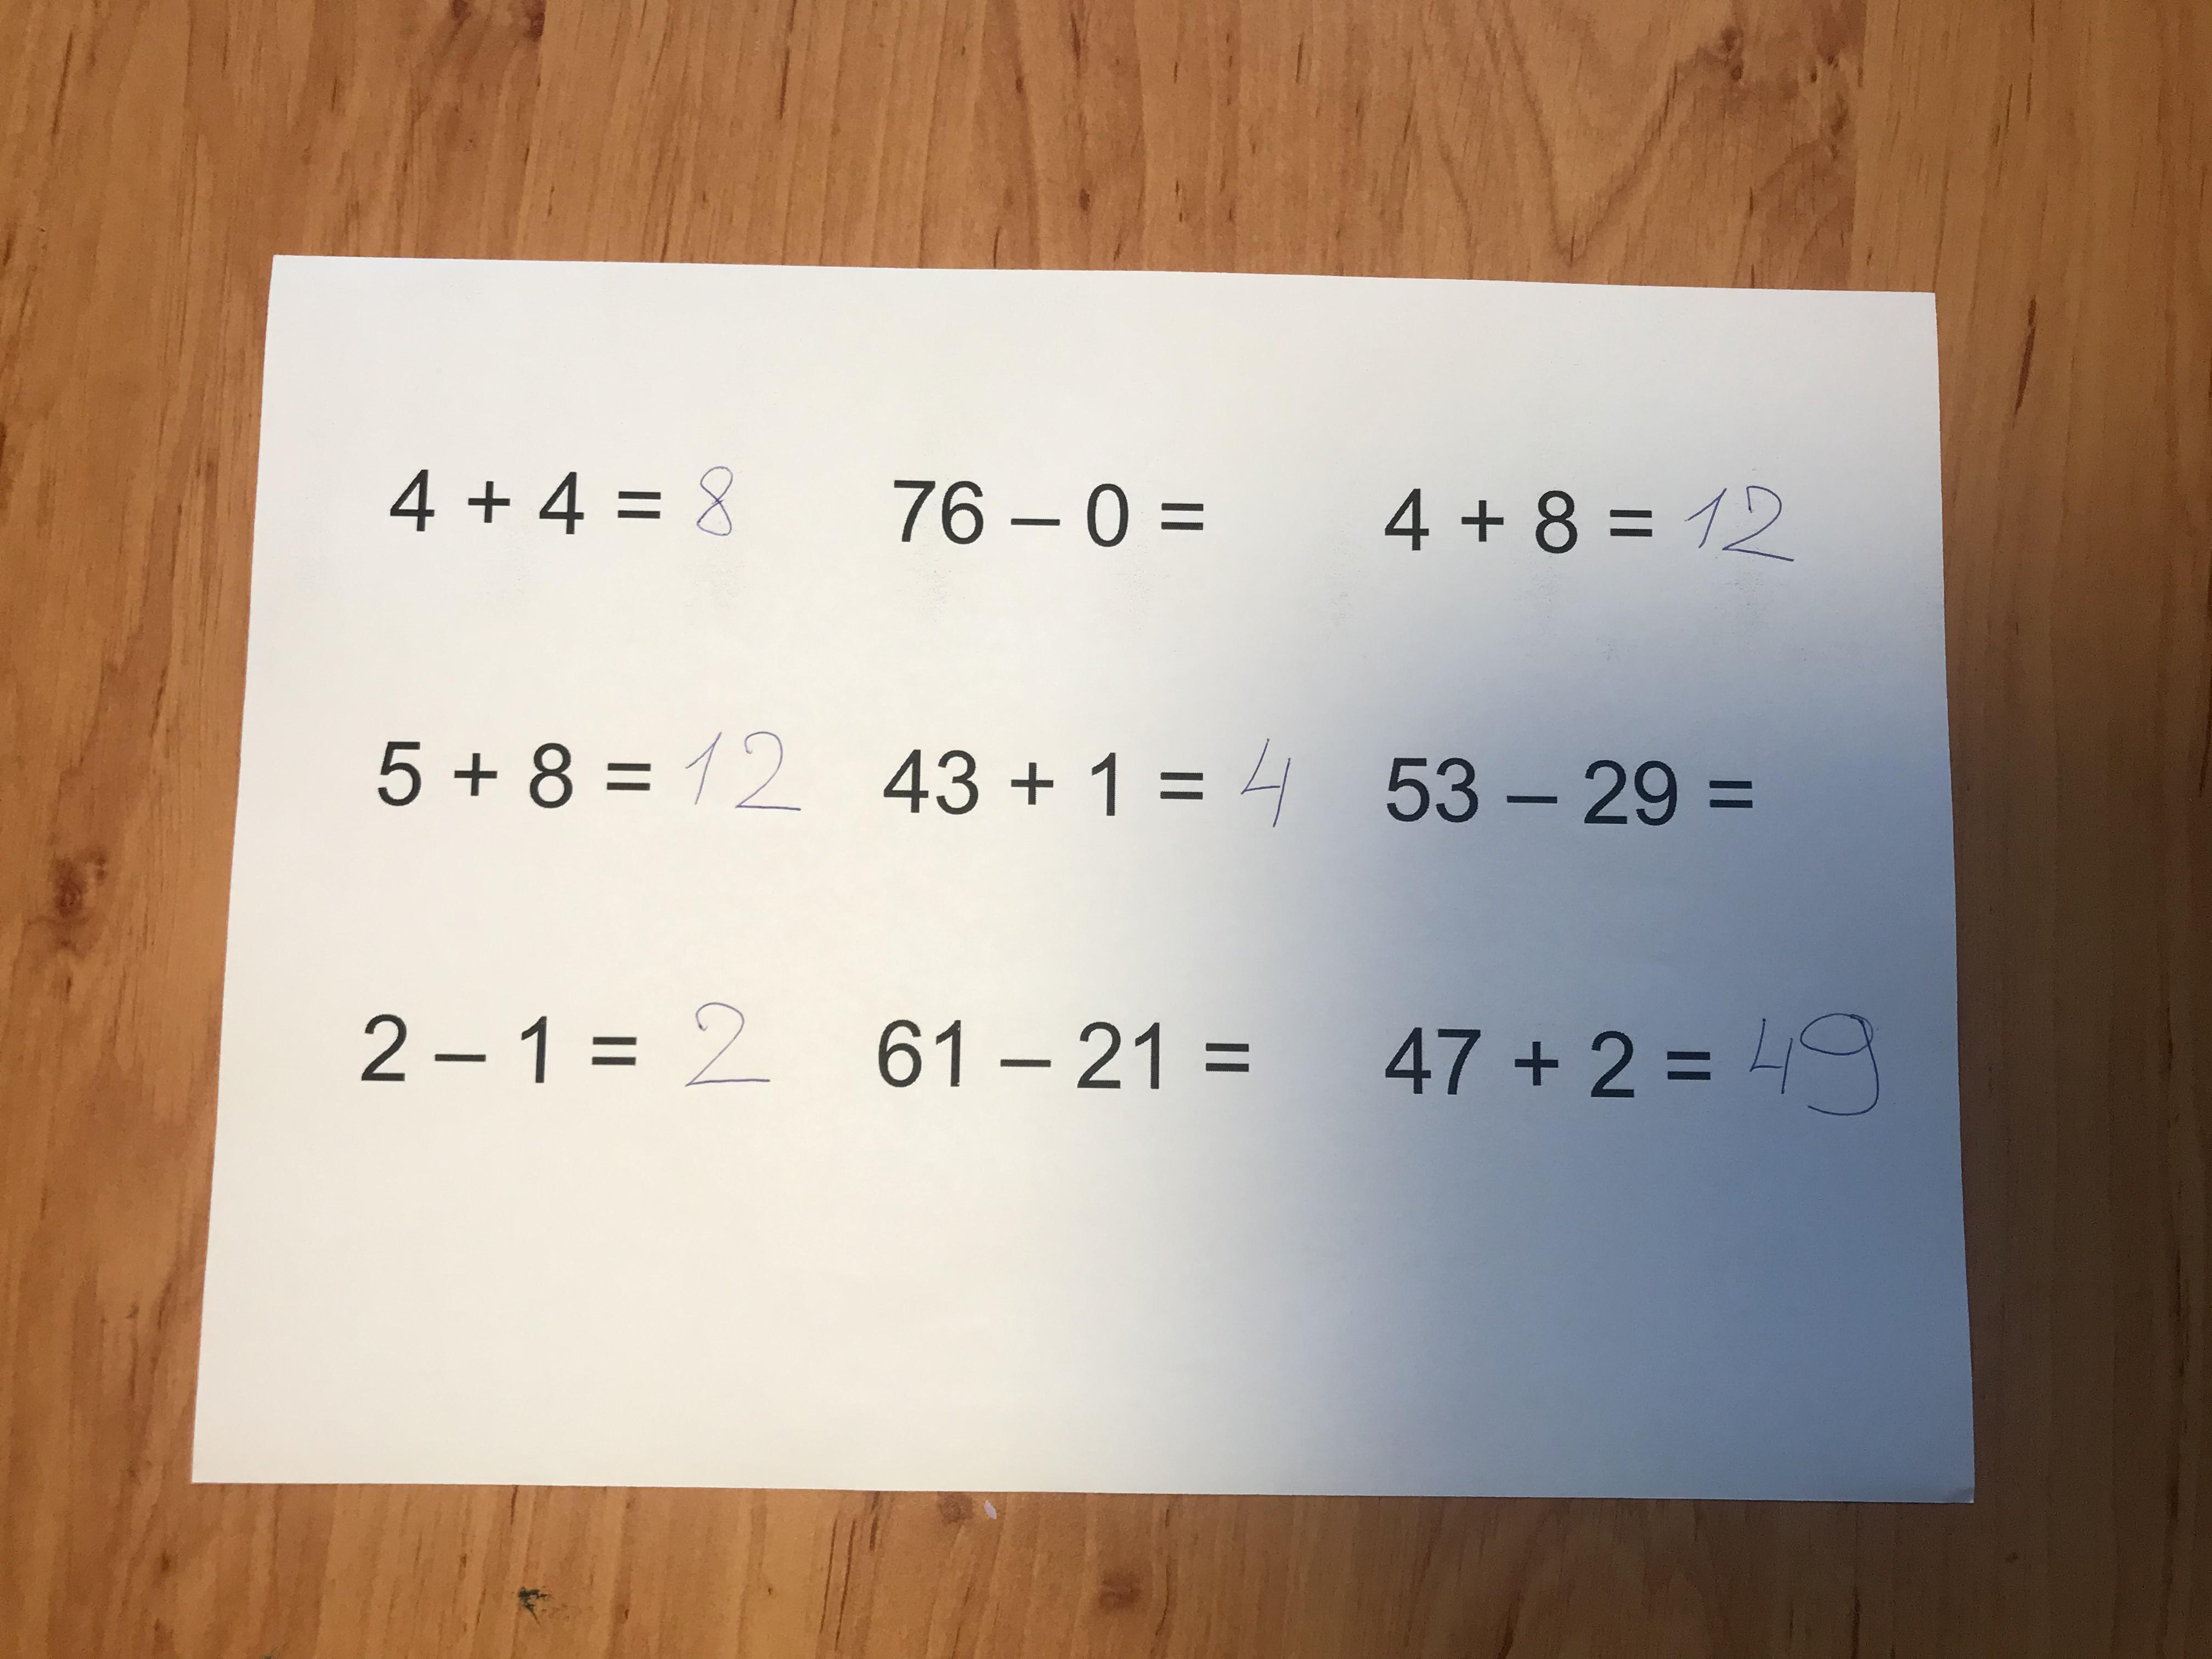 4 + 4 = 8 76 – 0 = 4 + 8 = 12
5 + 8 = 12 43 + 1 = 4 53 – 29 =
2 – 1 = 2 61 – 21 = 47 + 2 = 49